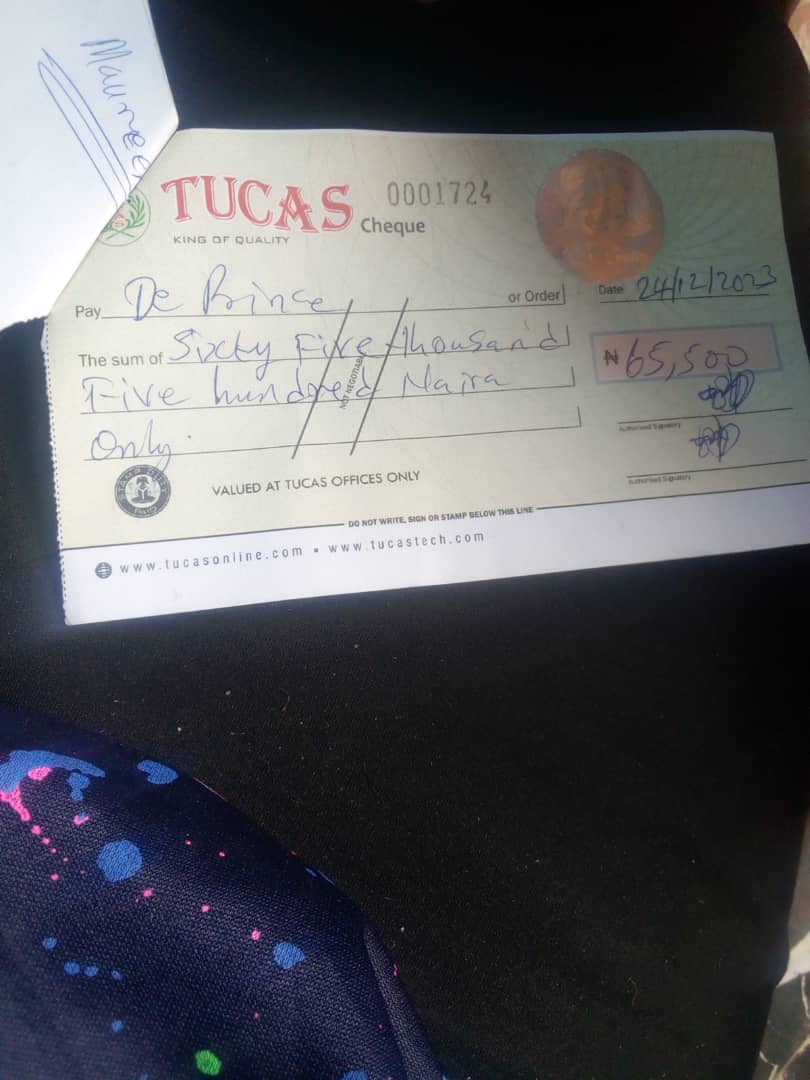 TUCAS
KING OF QUALITY
0001724
Cheque
Pay De Prince or Order
Date 24/12/2023
The sum of Sixty Five thousand
Five hundred Naira
Only.
₦ 65,500
NOT NEGOTIABLE
Authorised Signatory
Authorised Signatory
STAMP DUTY
PAID
VALUED AT TUCAS OFFICES ONLY
DO NOT WRITE, SIGN OR STAMP BELOW THIS LINE
www.tucasonline.com • www.tucastech.com